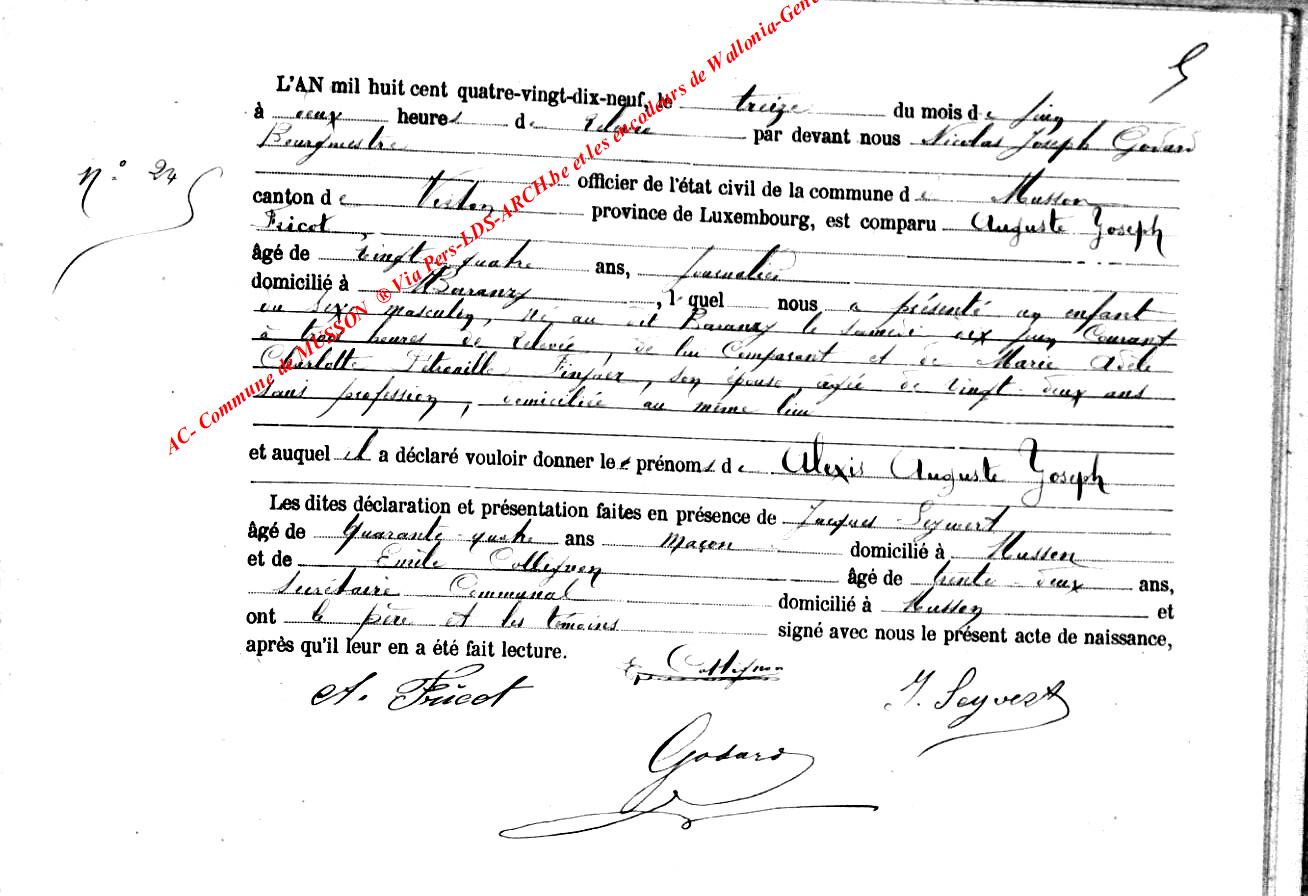 5
L'AN mil huit cent quatre-vingt-dix-neuf, le treize du mois de juin
à deux heures de Relevée par devant nous Nicolas Joseph Godard
Bourgmestre
N° 24
officier de l'état civil de la commune de Musson
canton de Virton province de Luxembourg, est comparu Auguste Joseph
Fricot,
âgé de vingt quatre ans, journalier
domicilié à Baranzy, lequel nous a présenté un enfant
du sexe masculin, né au dit Baranzy le samedi dix juin Courant
à trois heures de Relevée, de lui Comparant et de Marie Adèle
Charlotte Pétronille, son épouse, âgée de vingt deux ans
sans profession, domiciliée au même lieu
et auquel il a déclaré vouloir donner les prénoms de Alexis Auguste Joseph
Les dites déclaration et présentation faites en présence de Jacques Seywert
âgé de Quarante quatre ans maçon domicilié à Musson
et de Emile Collignon âgé de trente deux ans,
Secrétaire Communal domicilié à Musson et
ont le père et les témoins signé avec nous le présent acte de naissance,
après qu'il leur en a été fait lecture.
E. Collignon
A. Fricot J. Seyvert
Godard
AC- Commune de MUSSON ® Via Pers-LDS-ARCH.be et les encodeurs de Wallonia-Gen